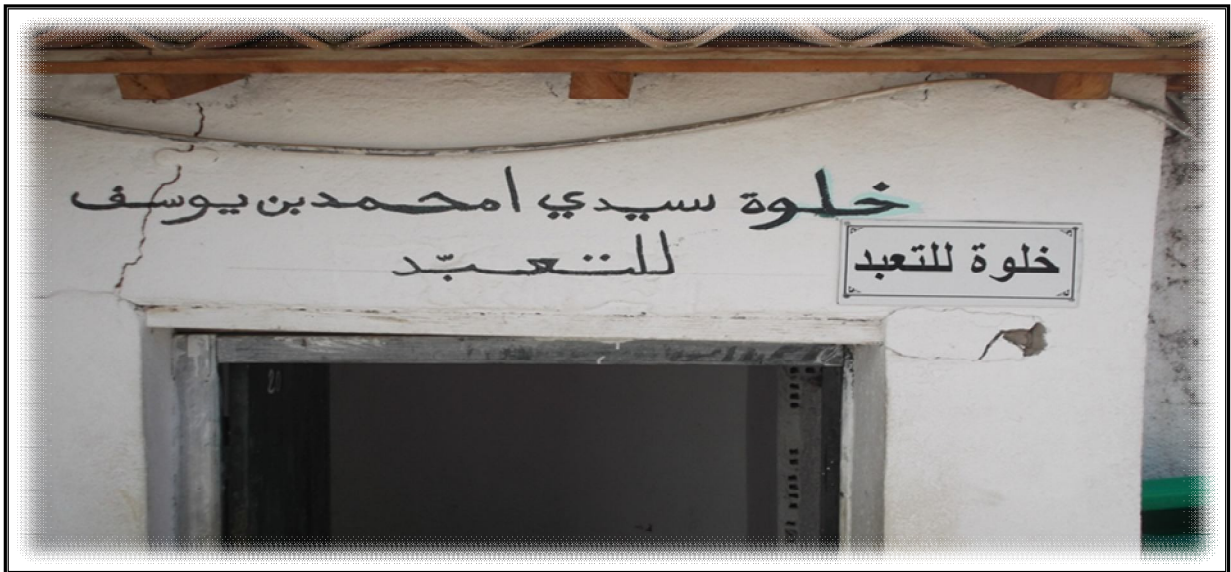 خلوة سيدي امحمد بن يوسف
للتعبّد
خلوة للتعبد